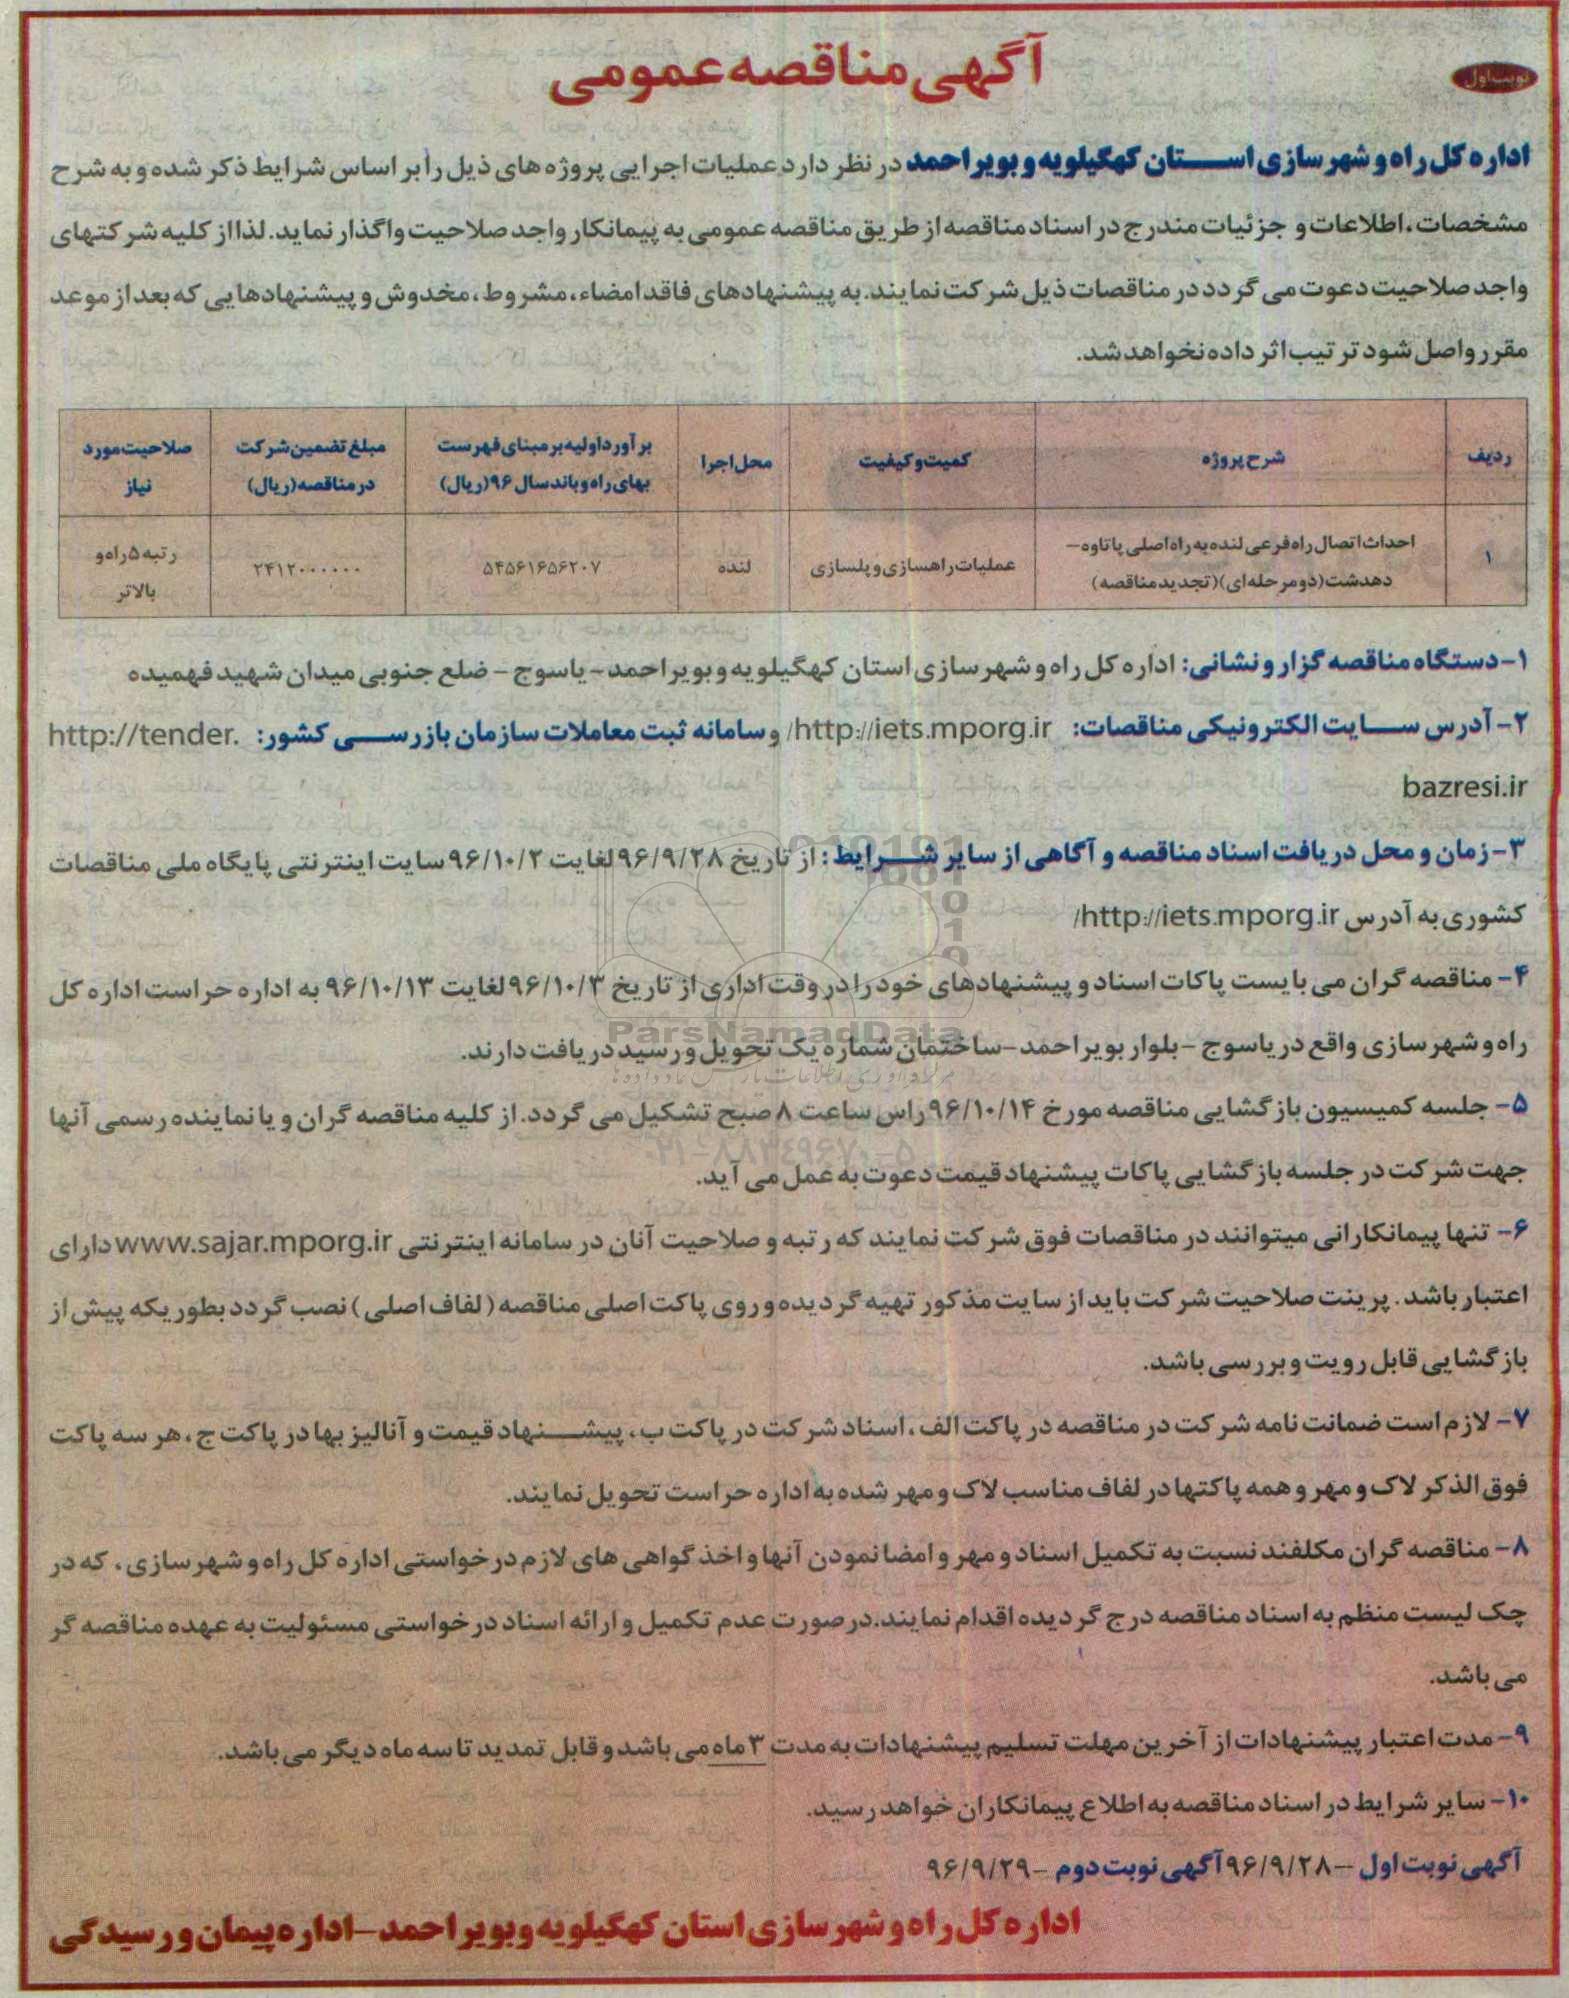 آگهی مناقصه عمومی
نوبت اول
اداره کل راه و شهرسازی استان کهگیلویه و بویراحمد در نظر دارد عملیات اجرایی پروژه های ذیل را بر اساس شرایط ذکر شده و به شرح
مشخصات، اطلاعات و جزئیات مندرج در اسناد مناقصه از طریق مناقصه عمومی به پیمانکار واجد صلاحیت واگذار نماید. لذا از کلیه شرکتهای
واجد صلاحیت دعوت می گردد در مناقصات ذیل شرکت نمایند. به پیشنهادهای فاقد امضاء، مشروط، مخدوش و پیشنهادهایی که بعد از موعد
مقرر واصل شود ترتیب اثر داده نخواهد شد.
ردیف
شرح پروژه
کمیت و کیفیت
محل اجرا
برآورد اولیه بر مبنای فهرست
بهای راه و باند سال ۹۶ (ریال)
مبلغ تضمین شرکت
در مناقصه (ریال)
صلاحیت مورد
نیاز
۱
احداث اتصال راه فرعی لنده به راه اصلی پاتاوه –
دهدشت (دو مرحله ای) (تجدید مناقصه)
عملیات راهسازی و پلسازی
لنده
۵۴۵۶۱۶۵۶۲۰۷
۲۴۱۲۰۰۰۰۰۰
رتبه ۵ راه و
بالاتر
۱- دستگاه مناقصه گزار و نشانی: اداره کل راه و شهرسازی استان کهگیلویه و بویراحمد – یاسوج – ضلع جنوبی میدان شهید فهمیده
۲- آدرس سایت الکترونیکی مناقصات: http://iets.mporg.ir/ و سامانه ثبت معاملات سازمان بازرسی کشور: http://tender.
bazresi.ir
۳- زمان و محل دریافت اسناد مناقصه و آگاهی از سایر شرایط: از تاریخ ۹۶/۹/۲۸ لغایت ۹۶/۱۰/۲ سایت اینترنتی پایگاه ملی مناقصات
کشوری به آدرس http://iets.mporg.ir/
۴- مناقصه گران می بایست پاکات اسناد و پیشنهادهای خود را در وقت اداری از تاریخ ۹۶/۱۰/۳ لغایت ۹۶/۱۰/۱۳ به اداره حراست اداره کل
راه و شهرسازی واقع در یاسوج – بلوار بویراحمد – ساختمان شماره یک تحویل و رسید دریافت دارند.
ParsNamadData
۵- جلسه کمیسیون بازگشایی مناقصه مورخ ۹۶/۱۰/۱۴ راس ساعت ۸ صبح تشکیل می گردد. از کلیه مناقصه گران و یا نماینده رسمی آنها
۰۲۱-۸۸۳۴۹۶۷۰-۵
جهت شرکت در جلسه بازگشایی پاکات پیشنهاد قیمت دعوت به عمل می آید.
۶- تنها پیمانکارانی میتوانند در مناقصات فوق شرکت نمایند که رتبه و صلاحیت آنان در سامانه اینترنتی www.sajar.mporg.ir دارای
اعتبار باشد. پرینت صلاحیت شرکت باید از سایت مذکور تهیه گردیده و روی پاکت اصلی مناقصه (لفاف اصلی) نصب گردد بطوریکه پیش از
بازگشایی قابل رویت و بررسی باشد.
۷- لازم است ضمانت نامه شرکت در مناقصه در پاکت الف، اسناد شرکت در پاکت ب، پیشنهاد قیمت و آنالیز بها در پاکت ج، هر سه پاکت
فوق الذکر لاک و مهر و همه پاکتها در لفاف مناسب لاک و مهر شده به اداره حراست تحویل نمایند.
۸- مناقصه گران مکلفند نسبت به تکمیل اسناد و مهر و امضا نمودن آنها و اخذ گواهی های لازم درخواستی اداره کل راه و شهرسازی، که در
چک لیست منظم به اسناد مناقصه درج گردیده اقدام نمایند. در صورت عدم تکمیل و ارائه اسناد درخواستی مسئولیت به عهده مناقصه گر
می باشد.
۹- مدت اعتبار پیشنهادات از آخرین مهلت تسلیم پیشنهادات به مدت ۳ ماه می باشد و قابل تمدید تا سه ماه دیگر می باشد.
۱۰- سایر شرایط در اسناد مناقصه به اطلاع پیمانکاران خواهد رسید.
آگهی نوبت اول – ۹۶/۹/۲۸ آگهی نوبت دوم – ۹۶/۹/۲۹
اداره کل راه و شهرسازی استان کهگیلویه و بویراحمد – اداره پیمان و رسیدگی